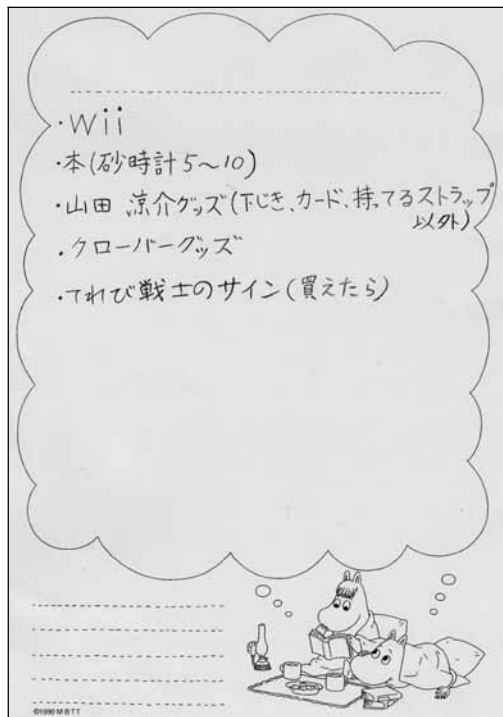 ・Wii
・本(砂時計5～10)
・山田 涼介グッズ(下じき、カード、持ってるストラップ
以外)
・クローバーグッズ
・てれび戦士のサイン(買えたら)
©1990 M BTT